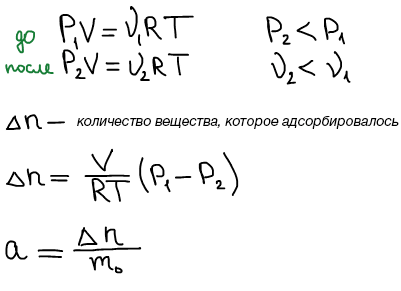 до P₁V = ν₁RT P₂ < P₁
после P₂V = ν₂RT ν₂ < ν₁
Δn – количество вещества, которое адсорбировалось
Δn = V/RT (P₁ – P₂)
a = Δn/m₀